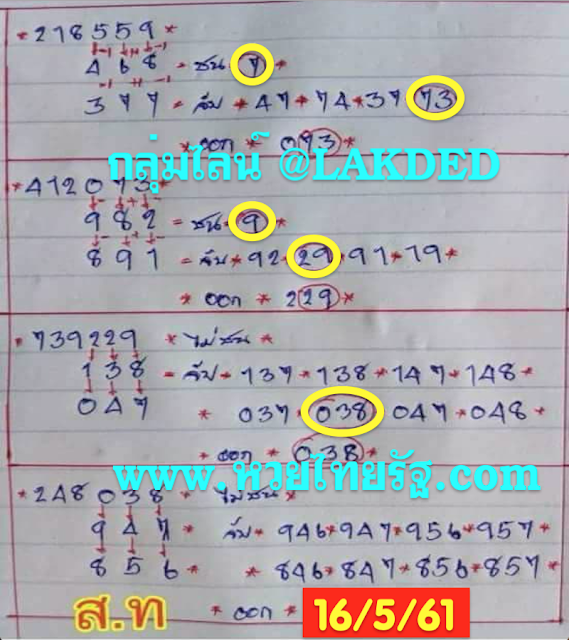 *218559*
-1 +1 -1
468 = ชน 7 *
-1 -1
377 = จับ * 47*74*37 73
* ออก * 073 *
กลุ่มไลน์ @LAKDED
*412073*
982 = ชน 9 *
891 = จับ * 92 29 *91*19*
* ออก * 229 *
*739229 * ไม่ชน *
138 = จับ * 137*138*147*148*
047 * 037 038 047*048*
* ออก * 038 *
www.หวยไทยรัฐ.com
*248038 * ไม่ชน *
947 * จับ * 946*947*956*957*
856 * * 846*847*856*857*
ส.ท * ออก * 16/5/61